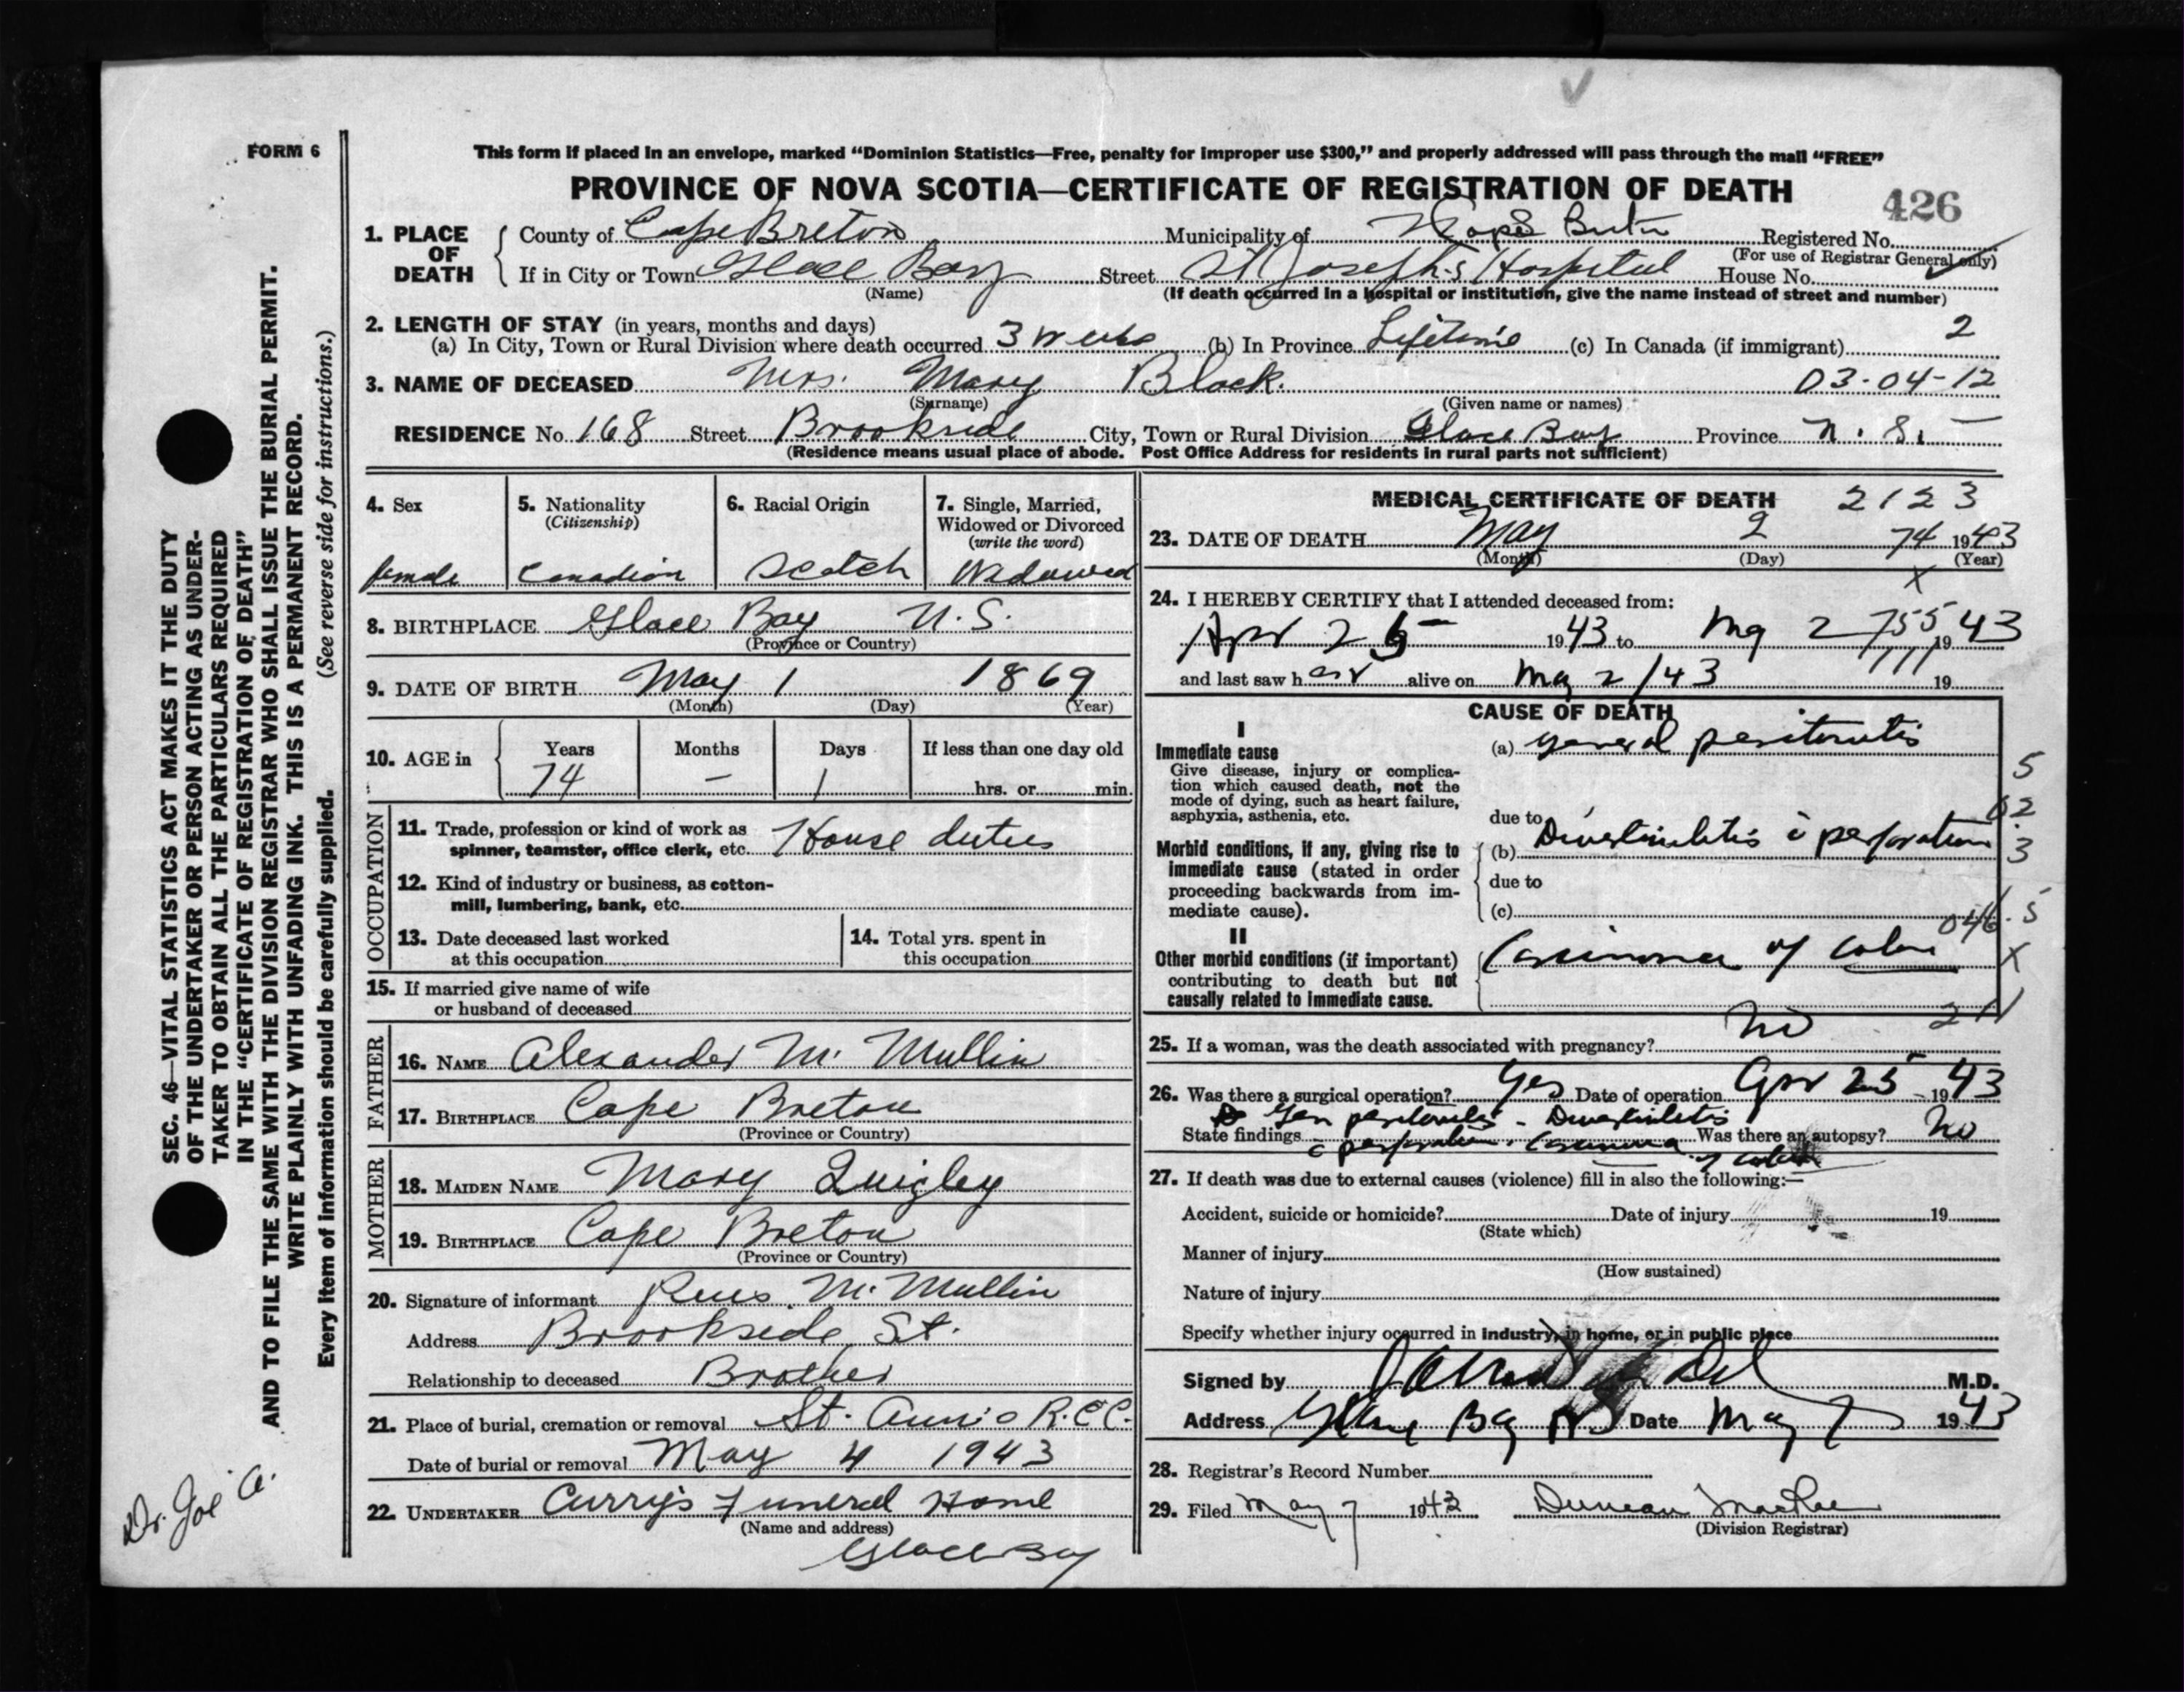 FORM 6
This form if placed in an envelope, marked “Dominion Statistics—Free, penalty for improper use $300,” and properly addressed will pass through the mail “FREE”
PROVINCE OF NOVA SCOTIA—CERTIFICATE OF REGISTRATION OF DEATH
426
1. PLACE OF DEATH
County of Cape Breton Municipality of Cape Breton Registered No.
(For use of Registrar General only)
If in City or Town Glace Bay Street St Joseph's Hospital House No.
(Name) (If death occurred in a hospital or institution, give the name instead of street and number)
2. LENGTH OF STAY (in years, months and days)
(a) In City, Town or Rural Division where death occurred 3 weeks (b) In Province Lifetime (c) In Canada (if immigrant) 2
3. NAME OF DECEASED Mrs. Mary Black. 03-04-12
(Surname) (Given name or names)
RESIDENCE No. 168 Street Brookside City, Town or Rural Division Glace Bay Province N. S.
(Residence means usual place of abode. Post Office Address for residents in rural parts not sufficient)
4. Sex
female
5. Nationality
(Citizenship)
Canadian
6. Racial Origin
Scotch
7. Single, Married,
Widowed or Divorced
(write the word)
Widowed
8. BIRTHPLACE Glace Bay N.S.
(Province or Country)
9. DATE OF BIRTH May 1 1869
(Month) (Day) (Year)
10. AGE in
Years Months Days If less than one day old
74 – 1 hrs. or min.
OCCUPATION
11. Trade, profession or kind of work as
spinner, teamster, office clerk, etc. House duties
12. Kind of industry or business, as cotton-
mill, lumbering, bank, etc.
13. Date deceased last worked
at this occupation
14. Total yrs. spent in
this occupation
15. If married give name of wife
or husband of deceased
FATHER
16. NAME Alexander Mc Mullin
17. BIRTHPLACE Cape Breton
(Province or Country)
MOTHER
18. MAIDEN NAME Mary Quigley
19. BIRTHPLACE Cape Breton
(Province or Country)
20. Signature of informant Mc Mullin
Address Brookside St.
Relationship to deceased Brother
21. Place of burial, cremation or removal St. Ann's R.C.C.
Date of burial or removal May 4 1943
22. UNDERTAKER Curry's Funeral Home
(Name and address)
Glace Bay
MEDICAL CERTIFICATE OF DEATH 2123
23. DATE OF DEATH May 2 74 1943
(Month) (Day) (Year)
x
24. I HEREBY CERTIFY that I attended deceased from:
Apr 25 1943 to May 2 755 1943
and last saw her alive on May 2/43 1111 19
CAUSE OF DEATH
I
Immediate cause
Give disease, injury or complica-
tion which caused death, not the
mode of dying, such as heart failure,
asphyxia, asthenia, etc.
(a) general peritonitis
5
due to
02
Morbid conditions, if any, giving rise to
immediate cause (stated in order
proceeding backwards from im-
mediate cause).
(b) Diverticulitis c̄ perforation
3
due to
(c)
046.5
II
Other morbid conditions (if important)
contributing to death but not
causally related to immediate cause.
Carcinoma of colon
X
25. If a woman, was the death associated with pregnancy? No
26. Was there a surgical operation? Yes Date of operation Apr 25 1943
Gen peritonitis - Diverticulitis
State findings c̄ perforation. Carcinoma of colon Was there an autopsy? No
27. If death was due to external causes (violence) fill in also the following:—
Accident, suicide or homicide? Date of injury 19
(State which)
Manner of injury
(How sustained)
Nature of injury
Specify whether injury occurred in industry, in home, or in public place
Signed by M.D.
Address Glace Bay NS Date May 7 1943
28. Registrar's Record Number
29. Filed May 7 1943 Duncan MacRae
(Division Registrar)
SEC. 46—VITAL STATISTICS ACT MAKES IT THE DUTY
OF THE UNDERTAKER OR PERSON ACTING AS UNDER-
TAKER TO OBTAIN ALL THE PARTICULARS REQUIRED
IN THE “CERTIFICATE OF REGISTRATION OF DEATH”
AND TO FILE THE SAME WITH THE DIVISION REGISTRAR WHO SHALL ISSUE THE BURIAL PERMIT.
WRITE PLAINLY WITH UNFADING INK. THIS IS A PERMANENT RECORD.
Every item of information should be carefully supplied. (See reverse side for instructions.)
Dr. Joe A.